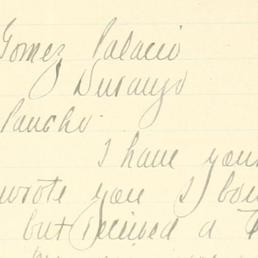 Gomez Palacio
Durango
Pancho.
I have your
wrote you I
but received a